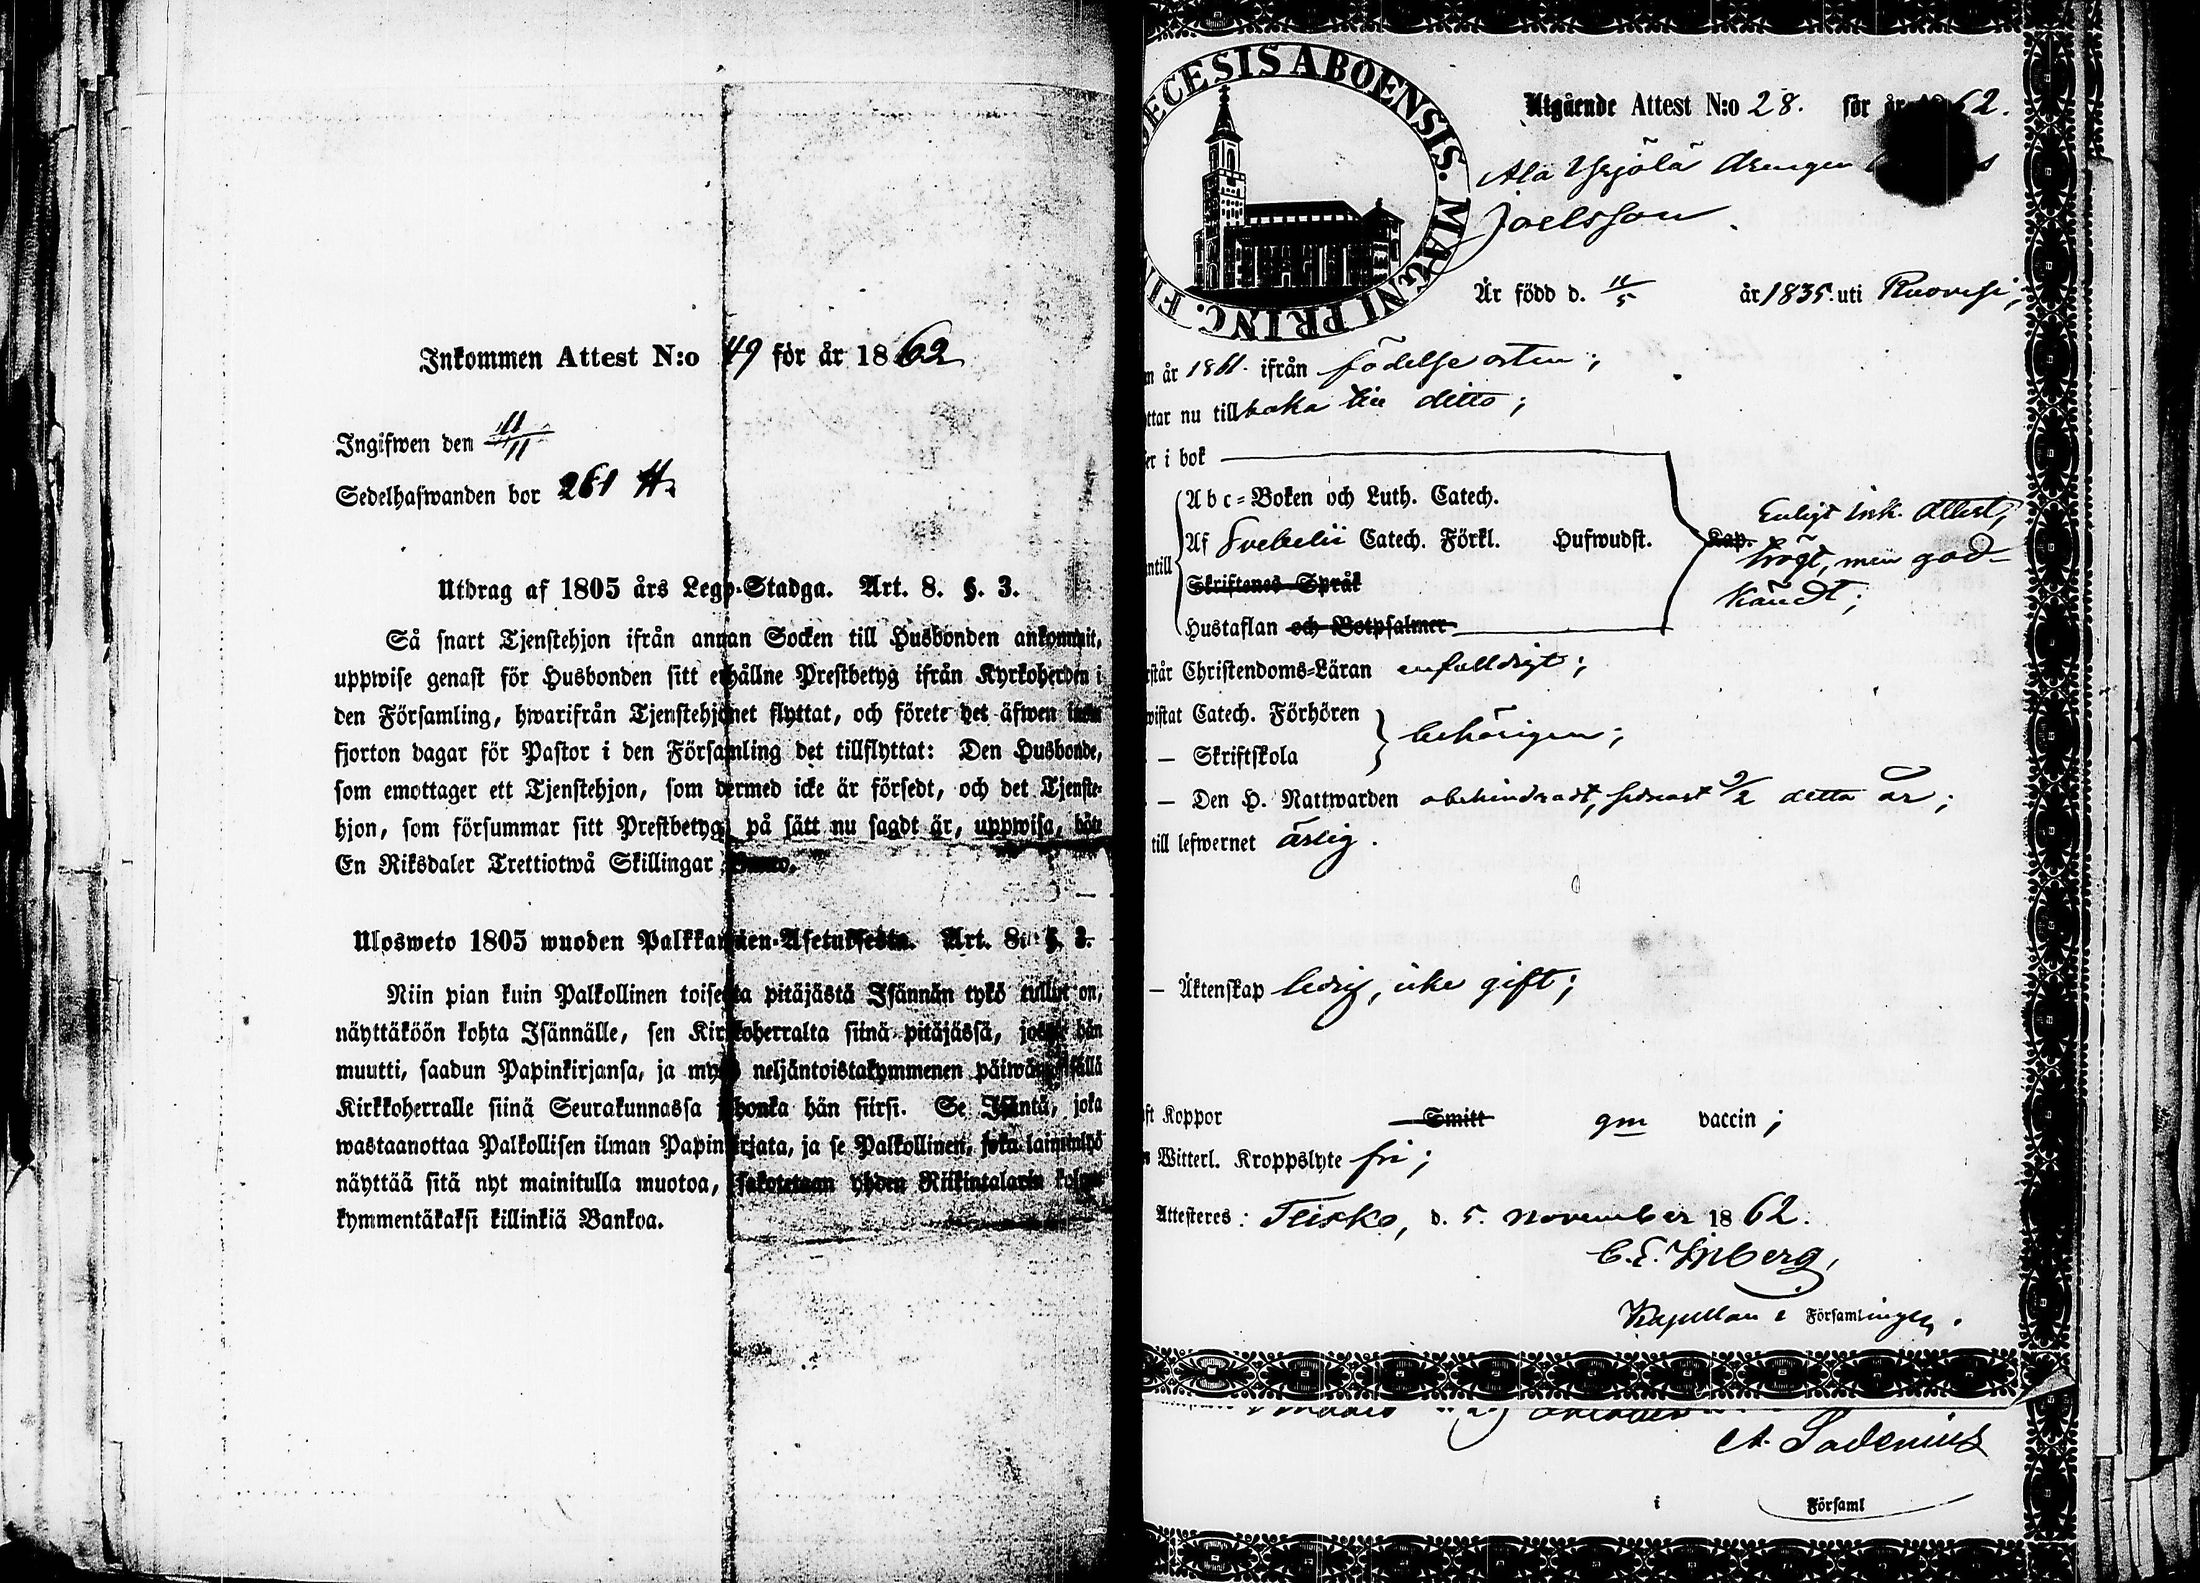 Inkommen Attest N:o 49 för år 1862
Ingifwen den 11/11
Sedelhafwanden bor 261 H.
Utdrag af 1805 års Lego-Stadga. Art. 8. §. 3.
Så snart Tjenstehjon ifrån annan Socken till Husbonden ankommit,
uppwise genast för Husbonden sitt erhållne Prestbetyg ifrån Kyrkoherden i
den Församling, hwarifrån Tjenstehjonet flyttat, och förete det äfwen inom
fjorton dagar för Pastor i den Församling det tillflyttat: Den Husbonde,
som emottager ett Tjenstehjon, som dermed icke är försedt, och det Tjenste-
hjon, som försummar sitt Prestbetyg, på sätt nu sagdt är, uppwisa, böte
En Riksdaler Trettiotwå Skillingar Banco.
Ulosweto 1805 wuoden Palkkawäen-Asetuksesta. Art. 8. §. 3.
Niin pian kuin Palkollinen toisesta pitäjästä Isännän tykö tullut on,
näyttäköön kohta Isännälle, sen Kirkkoherralta siinä pitäjässä, josta hän
muutti, saadun Papinkirjansa, ja myös neljäntoistakymmenen päiwän sisällä
Kirkkoherralle siinä Seurakunnassa johonka hän siirsi. Se Isäntä, joka
wastaanottaa Palkollisen ilman Papinkirjata, ja se Palkollinen, joka laiminlyö
näyttää sitä nyt mainitulla muotoa, sakotetaan yhden Riikintalarin kolme
kymmentäkaksi killinkiä Bankoa.
ECESIS ABOENSIS. MAGNI PRINC. FI
Utgående Attest N:o 28. för år 1862.
Ala Yrjölä drengen
Joelsson.
Är född d. 11/5 år 1835. uti Ruovesi;
n år 1861. ifrån födelse orten;
ttar nu tillbaka till ditto;
er i bok
Abc-Boken och Luth. Catech.
Af Svebelii Catech. Förkl. Hufwudst. Kap.
Enligt ink. attest,
trögt, men god-
kändt;
ntill
Skriftenes Språk
Hustaflan och Botpsalmer
rstår Christendoms-Läran enfalldigt;
wistat Catech. Förhören
— Skriftskola
behörigen;
— Den H. Nattwarden obehindradt, senast 9/2 detta år;
till lefwernet ärlig.
— Äktenskap ledig, icke gift;
ft Koppor Smitt gm vaccin;
n Witterl. Kroppslyte fri;
Attesteres: Teisko, d. 5. november 1862.
Kapellan i Församlingen.
i Församl